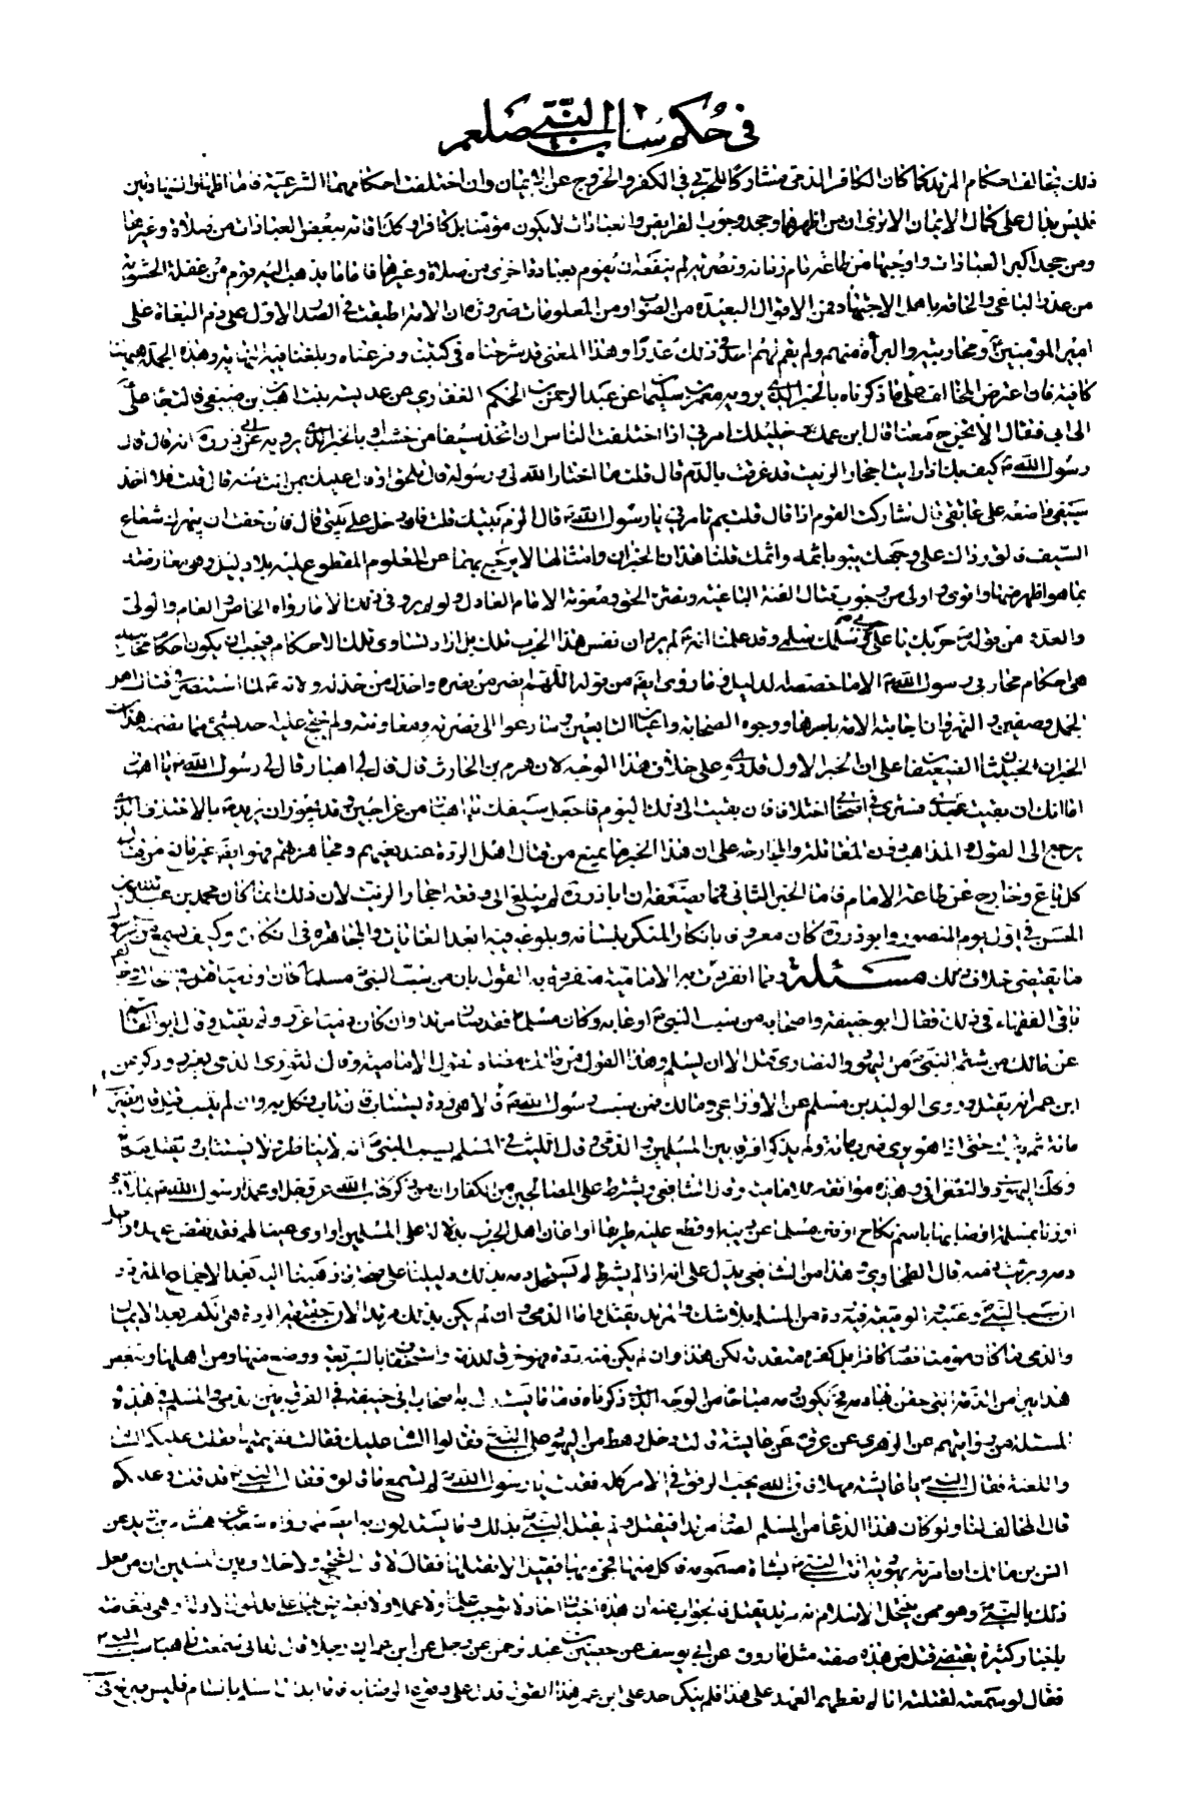 في حكم ساب النبي صلعم
ذلك تخالف احكام المرتد كما كان الكافر الذمي مشاركا للحربي في الكفر والخروج عن الايمان وان اختلفت احكامهما الشرعية فاما اظهار الشهادتين
فليس بدال على كمال الايمان الا ترى ان من اظهرهما وجحد وجوب الفرايض والعبادات لا يكون مؤمنا بل كافرا وكذا اقامة بعض العبادات من صلاة وغيرها
ومن جحد اكبر العبادات واوجبها من طاعة امام زمانه ونصرته لم ينفعه ان يقوم بعبادة اخرى من صلاة وغيرها فاما ما يذهب اليه قوم من غفلة الحشوية
من عذر الباغي والحاقه باهل الاجتهاد فمن الاقوال البعيدة من الصواب ومن المعلومات ضرورة ان الامة اطبقت في الصدر الاول على ذم البغاة على
امير المؤمنين ومحاربته والبرأة منهم ولم يقم لهم احد في ذلك عذرا وهذا المعنى قد شرحناه في كتبنا وفرعناه وبلغنا فيه النهاية وهذه الجملة ههنا
كافية فان اعترض المخالف على ما ذكرناه بالخبر الذي يرويه معمر بن سليمان عن عبد الرحمن بن الحكم الغفاري عن عديسة بنت اهبان بن صيفي قالت جاء علي
الى ابي فقال الا تخرج معنا قال ابن عمك خليلك امرني اذا اختلفت الناس ان اتخذ سيفا من خشب او بالخبر الذي يرويه عن ابي ذر انه قال قال
رسول الله كيف بك اذا رايت احجار الزيت قد غرقت بالدم قال قلت ما اختار الله لي ورسوله قال تلحق او قال عليك بمن انت منه قال قلت افلا اخذ
سيفي فاضعه على عاتقي قال شاركت القوم اذا قال قلت بم تامرني يا رسول الله قال الزم بيتك قلت فان دخل علي بيتي قال فان خفت ان يبهرك شعاع
السيف فالق رداك على وجهك يبوء باثمه واثمك قلنا هذان الخبران وامثالهما لا يرجع بهما عن المعلوم المقطوع عليه بلا دليل وهي معارضة
بما هو اظهر منها واقوى واولى من وجوب قتال الفئة الباغية ونصرة الحق ومعونة الامام العادل ولو لم يرو في ذلك الا ما رواه الخاص والعام والولي
والعدو من قوله حربك يا علي حربي وسلمك سلمي وقد علمنا انه لم يرد ان نفس هذا الحرب تلك بل اراد تساوي تلك الاحكام فيجب ان يكون احكام محاربيه
هي احكام محاربي رسول الله الا ما خصصه الدليل وما روي ايضا من قوله اللهم انصر من نصره واخذل من خذله ولانه لما استنفر في قتال اهل
الجمل وصفين والنهروان اجابته الامة باسرها ووجوه الصحابة واعيان التابعين وسارعوا الى نصرته ومعاونته ولم يحتج عليه احد بشئ مما تضمنه هذان
الخبران الخبيثان الضعيفان على ان الخبر الاول قد روي على خلاف هذا الوجه لان هرم بن الحارث قال قال لي اهبان قال لي رسول الله يا اهبان
اما انك ان بقيت بعدي فسترى في اصحابي اختلافا فان بقيت الى ذلك اليوم فاجعل سيفك يا اهبان من عراجين وقد يجوز ان يريد بالاختلاف الذي
يرجع الى القول والمذاهب دون المقاتلة والمحاربة على ان هذا الخبر ما يمنع من قتال اهل الردة عند بغيهم ومجاهرتهم فهو ايضا غير مانع من قتال
كل باغ وخارج عن طاعة الامام فاما الخبر الثاني فمما يضعفه ان اباذر لم يبلغ الى وقعة احجار الزيت لان ذلك انما كان مع محمد بن عبد الله بن
الحسن في اول يوم المنصور وابو ذر كان معروفا بانكار المنكر بلسانه وبلوغه فيه ابعد الغايات والمجاهرة في انكاره وكيف يسمع من رسول
ما يقتضي خلاف ذلك مسئلة ومما انفردت به الامامية القول بان من سب النبي مسلما كان او ذميا قتل في الحال وخالف
باقي الفقهاء في ذلك فقال ابو حنيفة واصحابه من سب النبي او عابه وكان مسلما فقد صار مرتدا وان كان ذميا عزر ولم يقتل وقال ابن القاسم
عن مالك من شتم النبي من اليهود والنصارى قتل الا ان يسلم وهذا القول من مالك مضاه لقول الامامية وقال الثوري الذمي يعزر وذكر عن
ابن عمر انه يقتل وروى الوليد بن مسلم عن الاوزاعي ومالك فمن سب رسول الله قالا هي ردة يستتاب فان تاب نكل به وان لم يتب قتل قال يضرب
مائة ثم يترك حتى اذا هو برئ ضرب مائة ولم يذكرا فرقا بين المسلم والذمي وقال الليث في المسلم يسب النبي انه لا يناظر ولا يستتاب ويقتل مكانه
وكذلك اليهود والنصارى وهذه موافقة للامامية وقال الشافعي ويشترط على المصالحين من الكفار ان من ذكر كتاب الله عز وجل او محمدا رسول الله بما لا ينبغي
او زنا بمسلمة او اصابها باسم نكاح او فتن مسلما عن دينه او قطع عليه طريقا او اعان اهل الحرب بدلالة على المسلمين او اوى عينا لهم فقد نقض عهده واحل
دمه وبرئت ذمته قال الطحاوي هذا من الشافعي يدل على انه اذا لم يشترط لم يستحل دمه بذلك دليلنا على صحة ما ذهبنا اليه بعد الاجماع المتردد
ان سب النبي وعيبه والوقيعة فيه ردة من المسلم بلا شك والمرتد يقتل واما الذمي وان لم يكن بذلك مرتدا لان حقيقة الردة هي الكفر بعد الايمان
والذمي ما كان مؤمنا فصار كافرا بل كفره متقدم لكن هذا وان لم يكن منه ردة فهو خرق للذمة واستخفاف بالشريعة ووضع منها ومن اهلها وينقض
هذا يبرا من الذمة التي حقن بها دمه فيكون دمه مباحا من الوجه الذي ذكرناه فاما ما يستدل به اصحاب ابي حنيفة في الفرق بين الذمي والمسلم في هذه
المسئلة من روايتهم عن الزهري عن عروة عن عايشة قالت دخل رهط من اليهود على النبي فقالوا السام عليك فقالت ففهمتها فقلت عليكم السام
واللعنة فقال النبي يا عايشة مهلا فان الله يحب الرفق في الامر كله فقلت يا رسول الله الم تسمع ما قالوا فقال النبي قد قلت وعليكم
قال المخالف لنا ولو كان هذا الدعا من المسلم لصار مرتدا فيقتل ولم يقتل النبي بذلك وما يستدلون به ايضا ما رواه شعبة عن هشام بن زيد عن
انس بن مالك ان امراة يهودية اتت النبي بشاة مسمومة فاكل منها فجئ بها فقيل الا تقتلها فقال لا قال المحتج ولا خلاف بين المسلمين ان من فعل
ذلك بالنبي وهو ممن ينتحل الاسلام انه مرتد يقتل فالجواب عنه ان هذه اخبار احاد لا توجب علما ولا عملا
باخبار كثيرة تقتضي قتل من هذه صفته مثل ما روي عن ابي يوسف عن حصين بن عبد الرحمن عن رجل عن ابن عمر ان رجلا قال له اني سمعت راهبا سب النبي
فقال لو سمعته لقتلته انا لم نعطهم العهد على هذا فلم ينكر احد على ابن عمر هذا القول فدل على وقوع الرضا به فاما ابدال السام بالسلام فليس بصريح في